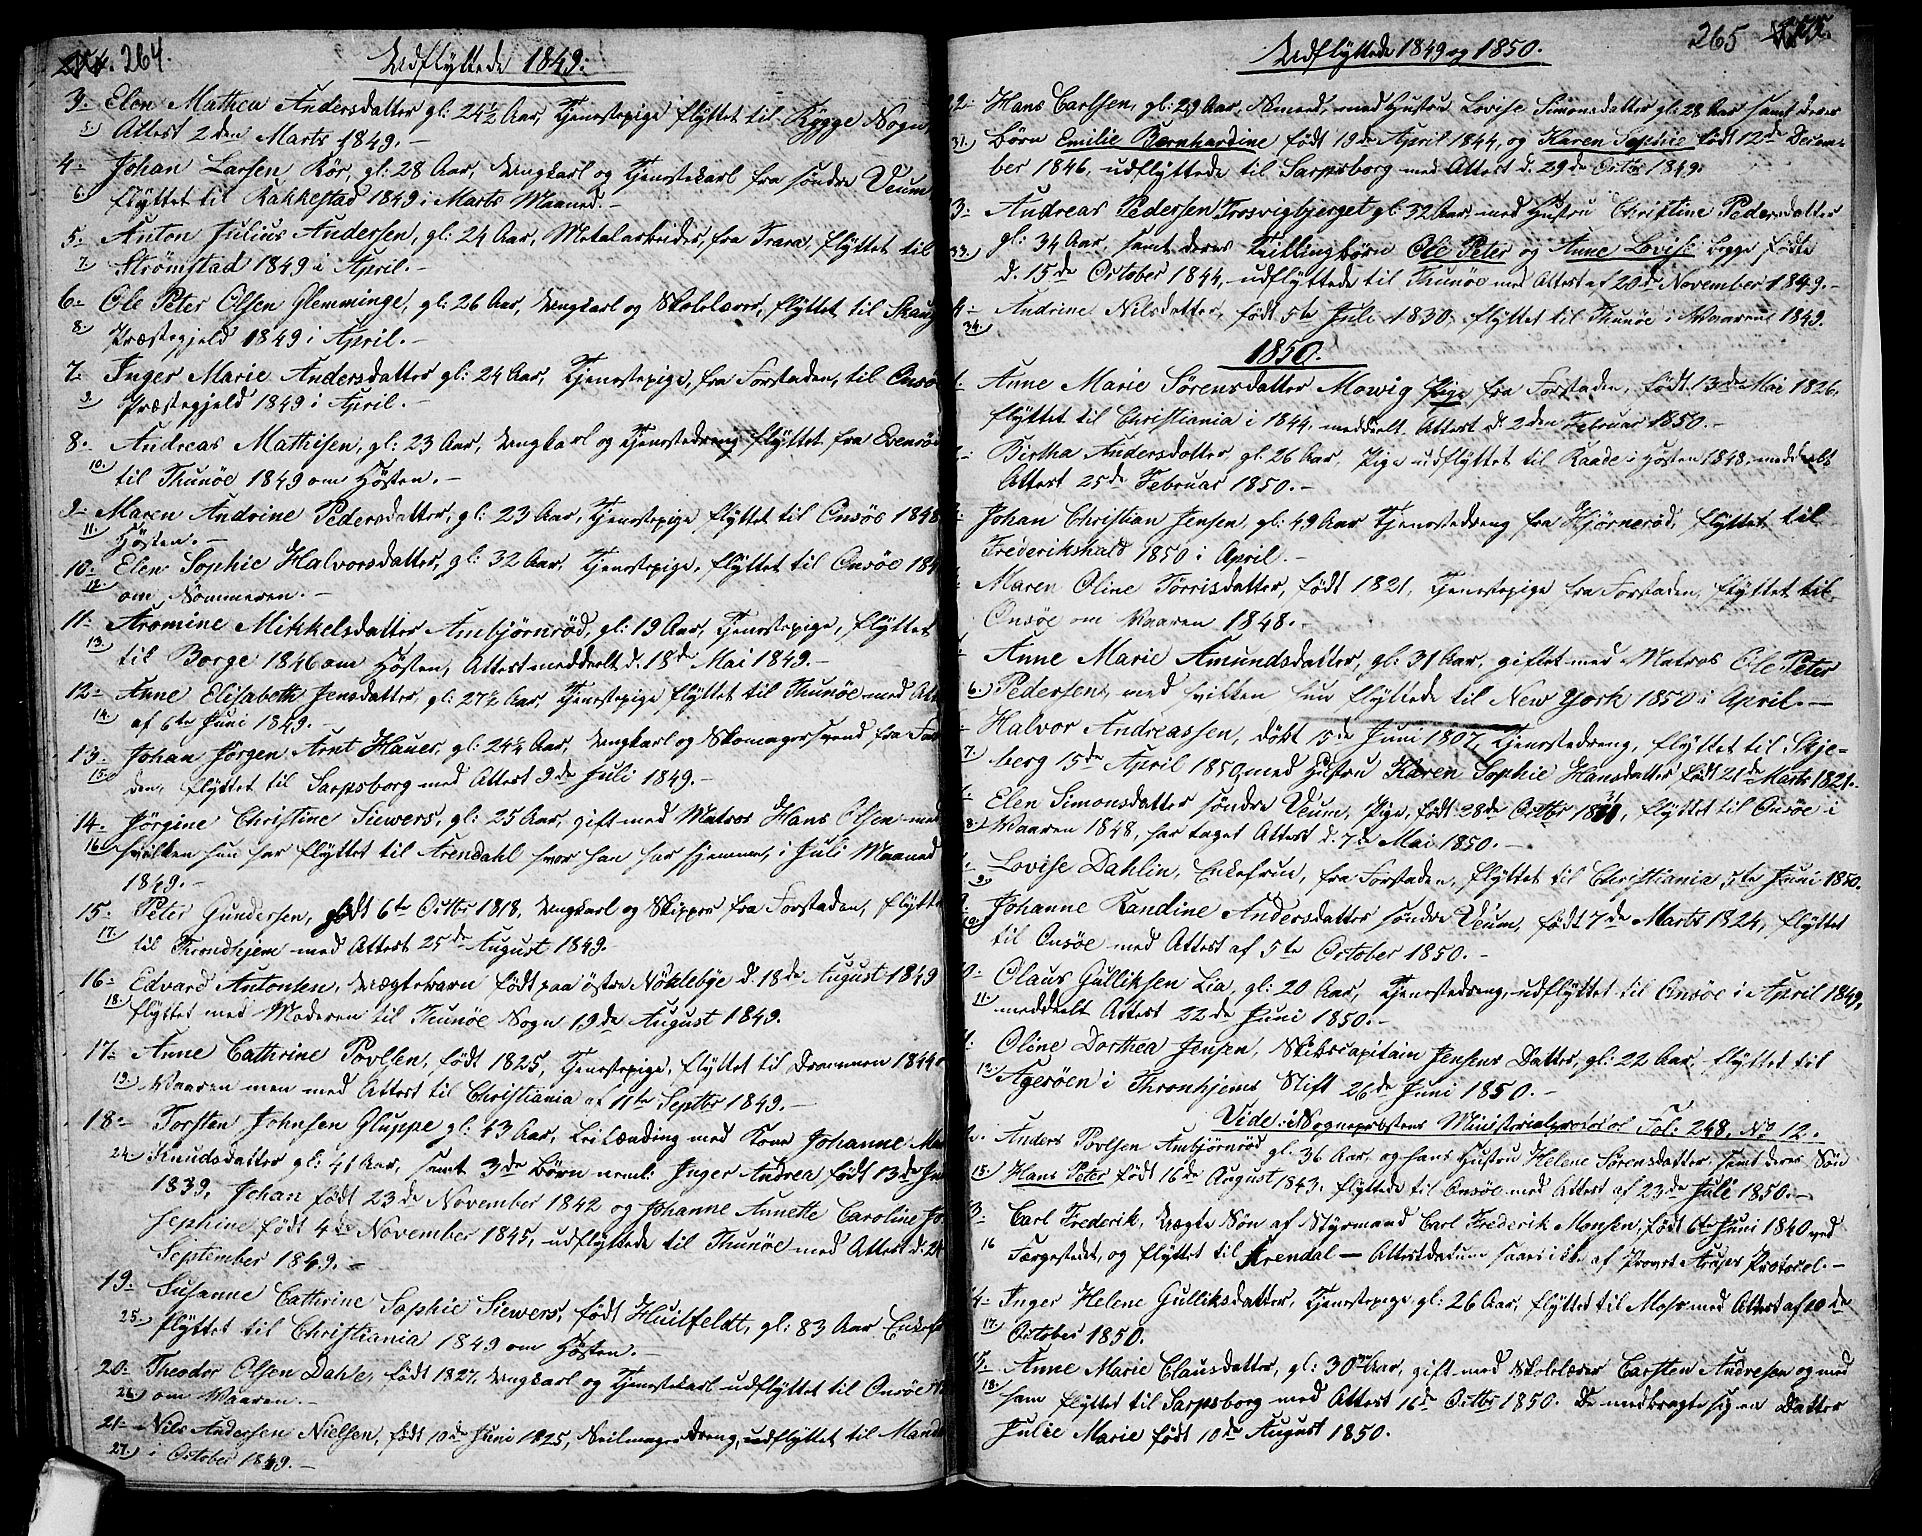 264.
Udflyttede 1849.
3. Elen Mathea Andersdatter gl: 24½ Aar, Tjenestepige flyttet til Rygge Sogn,
5. Attest 2den Marts 1849.-
4. Johan Larsen Rör, gl: 28 Aar, Ungkarl og Tjenestekarl fra söndre Veum
6. flyttet til Rakkestad 1849 i Marts Maaned.-
5. Anton Julius Andersen, gl: 24 Aar, Metalarbeider, fra Trara, flyttet til
7. Strømstad 1849 i April.-
6. Ole Peter Olsen Glemminge, gl: 26 Aar, Ungkarl og Skolelærer, flyttet til
8. Præstegjeld 1849 i April.-
7. Inger Marie Andersdatter gl: 24 Aar, Tjenestepige, fra Forstaden, til Onsöe
9. Præstegjeld 1849 i April.-
8. Andreas Mathisen, gl: 23 Aar, Ungkarl og Tjenestedreng flyttet fra Evenröd
10. til Thunöe 1849 om Hösten.-
9. Maren Andrine Pedersdatter, gl: 23 Aar, Tjenestepige flyttet til Onsöe 1848
11. Hösten.-
10. Elen Sophie Halvorsdatter, gl: 32 Aar, Tjenestepige, flyttet til Onsöe 184
12. om Sommeren.-
11. Aromine Mikkelsdatter Ambjörnröd, gl: 19 Aar, Tjenestepige, flyttet
13. til Borge 1846 om Hösten, Attest meddeelt d. 18de Mai 1849.-
12. Anne Elisabeth Jensdatter, gl: 27½ Aar, Tjenestepige flyttet til Thunöe med Att
14. af 6te Juni 1849.-
13. Johan Jörgen Arnt Hauer, gl: 24½ Aar, Ungkarl og Skomagersvend fra For
15. den, flyttet til Sarpsborg med Attest 9de Juli 1849.-
14. Jörgine Christine Siewers, gl: 25 Aar, gift med Matros Hans Olsen med
16. hvilken hun har flyttet til Arendahl hvor han har hjemme, i Juli Maaned
1849.-
15. Peter Gundersen, födt 6te Octbr 1818, Ungkarl og Skipper fra Forstaden, flytt
17. til Trondhjem med Attest 25de August 1849.
16. Edvard Antonsen, Uægtebarn födt paa östre Nöklebye d. 18de August 1849
18. flyttet med Moderen til Thunöe Sogn 19de August 1849.
17. Anne Cathrine Povlsen, födt 1825, Tjenestepige, flyttet til Drammen 1844
19. Vaaren men med Attest til Christiania af 11te Septbr 1849.-
18. Torsten Johnsen Gluppe gl: 43 Aar, Leilænding med Kone Johanne
24. Knudsdatter gl: 41 Aar, samt 3de Börn neml: Inger Andrea födt 13de
1839, Johan födt 23de November 1842 og Johanne Annette Caroline Jo
sephine födt 4de November 1845, udflyttede til Thunöe med Attest d. 24
September 1849.-
19. Susanne Cathrine Sophie Siewers, födt Huitfeldt, gl: 83 Aar Enkef
25. flyttet til Christiania 1849 om Hösten.-
20. Theodor Olsen Dahle, födt 1827, Ungkarl og Tjenestekarl udflyttet til Onsöe
26. om Vaaren.-
21. Nils Andersen Nielsen, födt 10de Juni 1825, Seilmagerdreng, udflyttet til Mand
27. i October 1849.-
265
Udflyttede 1849 og 1850.
22. Hans Carlsen, gl: 29 Aar, Smed, med Hustru Lovise Simonsdatter gl: 28 Aar samt deres
31. Börn Emilie Bernhardine födt 19de April 1844, og Karen Sophie födt 12de Decem-
ber 1846, udflyttede til Sarpsborg med Attest d. 29de Octbr 1849.
3. Andreas Pedersen Trosvigbjerget gl: 32 Aar med Hustru Christine Pedersdatter
33. gl: 34 Aar, samt deres Tvillingbörn Ole Peter og Anne Lovise begge födte
d. 15de October 1844, udflyttede til Thunöe med Attest af 20de November 1849.-
4. Andrine Nilsdatter, födt 5te Juli 1830, flyttet til Thunöe i Vaaren 1849.
34.
1850.
1. Anne Marie Sörensdatter Mowig Pige, fra Forstaden, födt 13de Mai 1826,
flyttet til Christiania i 1844, meddeelt Attest d. 2den Februar 1850.-
Birtha Andersdatter, gl: 26 Aar, Pige udflyttet til Raade i Hösten 1848, meddeelt
Attest 25de Februar 1850.-
Johan Christian Jensen, gl: 49 Aar Tjenestedreng fra Hjörneröd, flyttet til
Frederikshald 1850 i April.-
Maren Oline Torrisdatter, födt 1821, Tjenestepige fra Forstaden, flyttet til
Onsöe om Vaaren 1848.-
Anne Marie Amundsdatter, gl: 31 Aar, giftet med Matros Ole Peter
6. Pedersen, med hvilken hun flyttede til New York 1850 i April.-
Halvor Andreassen, födt 15de Juni 1807, Tjenestedreng, flyttet til Skje-
7. berg 15de April 1850 med Hustru Karen Sophie Hansdatter födt 21de Marts 1821.-
Elen Simonsdatter söndre Veum, Pige, födt 28de Octbr 1831, flyttet til Onsöe i
8. Vaaren 1848, har taget Attest d. 7de Mai 1850.-
9. Lovise Dahlin, Enkefrue, fra Forstaden, flyttet til Christiania 5te Juni 1850.
10. Johanne Randine Andersdatter söndre Veum, födt 7de Marts 1824, flyttet
til Onsöe med Attest af 5te October 1850.-
10. Claus Gulliksen Lia, gl: 20 Aar, Tjenestedreng, udflyttet til Onsöe i April 1849,
11. meddeelt Attest 22de Juni 1850.-
Oline Dorthea Jensen, Skibscapitain Jensens Datter, gl: 22 Aar, flyttet til
12. Ageröen i Thronhjems Stift 26de Juni 1850.-
Vide: Sogneprestens Ministerialprotocol Fol: 248, No 12.
2. Anders Povlsen Ambjörnröd gl: 36 Aar og hans Hustru Helene Sörensdatter samt deres Sön
15. Hans Peter födt 16de August 1843, flyttede til Onsöe med Attest af 23de Juli 1850.-
3. Carl Frederik, Uægte Sön af Styrmand Carl Frederik Monsen, födt 6te Juni 1840 ved
16 Færgestedet, og flyttet til Arendal - Attestdatum saaes ikke af Provst Protocol.-
4. Inger Helene Gulliksdatter, Tjenestepige gl: 26 Aar, flyttet til Moss med Attest af 10de
17. October 1850.
15. Anne Marie Clausdatter, gl: 30 Aar, gift med Skolelærer Carsten Andresen og med
18. ham flyttet til Sarpsborg med Attest 16de Octbr 1850. De medbragte sig en Datter
Julie Marie födt 10de August 1850.